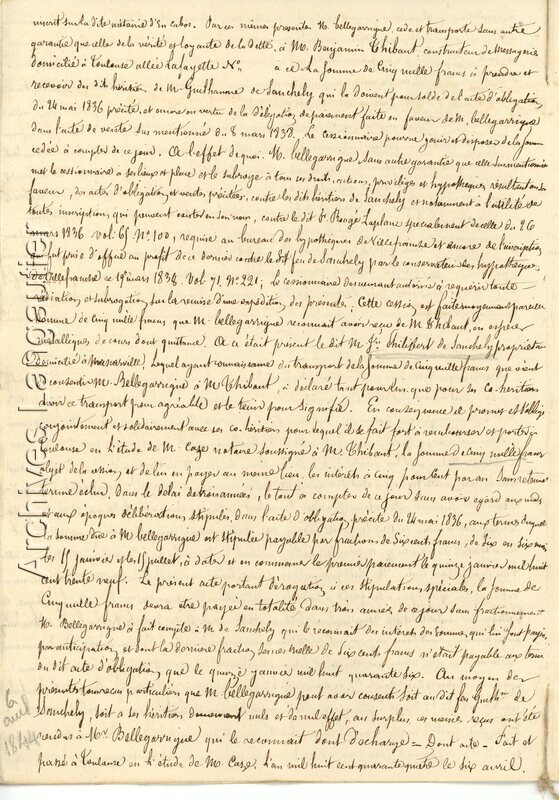 inscrit sur la dite métairie d'En Cabos. Par ces mêmes présentes M. bellegarrigue, cède et transporte sans autre
garantie que celle de la vérité et loyauté de la Dette, à M. Benjamin Thibaut, constructeur de Messageries
domicilié à Toulouse allée Lafayette N° à ce La somme de Cinq mille francs à prendre et
recevoir du dit héritier de M. de Sanchely qui la doivent pour solde de l'acte d'obligation
du 24 mai 1836 précité, et encore en vertu de la Délégation de payement faite en faveur de M. bellegarrigue
dans l'acte de vente sus mentionné du 8 mars 1838. Le cessionnaire pourra jouir et disposer de la somme
cédée à compter de ce jour. A l'effet de quoi M. bellegarrigue sans autre garantie que celle susmentionnée
met le cessionnaire à ses lieu et place et le subroge à tous ses droits, actions, privilèges et hypothèques résultant en sa
faveur, des actes d'obligation et ventes précitées, contre les dits héritiers de Sanchely et notamment à l'utilité de
toutes inscriptions qui peuvent exister en son nom, contre le dit Sr Rougé Laplane specialement de celle du 26
mars 1836 vol. 65 N° 100, requise au bureau des hypothèques de Villefranche et encore de l'inscription
prise d'office au profit de ce dernier contre le St feu de Sanchely par le conservateur des hypothèques
de Villefranche ce 19 mars 1838 Vol 71. N° 221; Le cessionnaire demeurant autorisé à requérir toute
radiation et subrogation, sur la remise d'une expédition des présentes. Cette cession est faite moyennant pareille
somme de Cinq mille francs que M. bellegarrigue reconnait avoir reçu de M. Thibaut, en espèces
métalliques de cours dont quittance. A ce était présent le dit M. philibert de Sanchely propriétaire
domicilié à Mascarville, Lequel ayant connaissance du transport de la somme de Cinq mille francs que vient
consentir M. Bellegarrigue à M. Thibaut, a déclaré tant pour lui que pour ses co-héritiers
avoir ce transport pour agréable et le tenir pour signifié. En conséquence il promet et s'oblige
conjointement et solidairement avec ses co-héritiers pour lequel il se fait fort à rembourser et porter à
Toulouse en l'étude de M. Caze notaire soussigné à M. Thibaut, la somme de cinq mille francs
objet de la cession, et de lui en payer au même lieu, les intérêts à cinq pour cent par an sans retenue
terme échu, dans le délai de trois années, le tout à compter de ce jour sans avoir égard au mode
et aux époques de libérations stipulés, dans l'acte d'obligation précité du 24 mai 1836, aux termes duquel
la somme due à M. bellegarrigue est stipulée payable par fractions de six cent francs, de six en six mois
les 15 janvier et 15 juillet, à dater et en commencer le premier paiement le quinze janvier mil huit
cent trente neuf. Le présent acte portant dérogation à ces stipulations spéciales, la somme de
Cinq mille francs devra etre payée en totalité dans trois années de ce jour sans fractionnement
M. Bellegarrigue a fait compte à M. de Sanchely qui le reconnait des intérêts des sommes, qui lui font payés
par anticipation, et dont la dernière fraction semestrielle de six cent francs n'etait payable aux termes
du dit acte d'obligation que le quinze janvier mil huit quarante six. Au moyen des
présentes tous reçus particuliers que M. bellegarrigue peut avoir consenti soit au dit feu de
Sanchely, soit à ses héritiers demeurent nuls et de nul effet, au surplus ces mêmes reçus ont été
rendus à Mr Bellegarrigue qui le reconnait dont décharge = Dont acte - Fait et
passé à Toulouse en l'étude de M. Caze, L'an mil huit cent quarante quatre le six avril.
6
avril
1844
Archives Lagautier